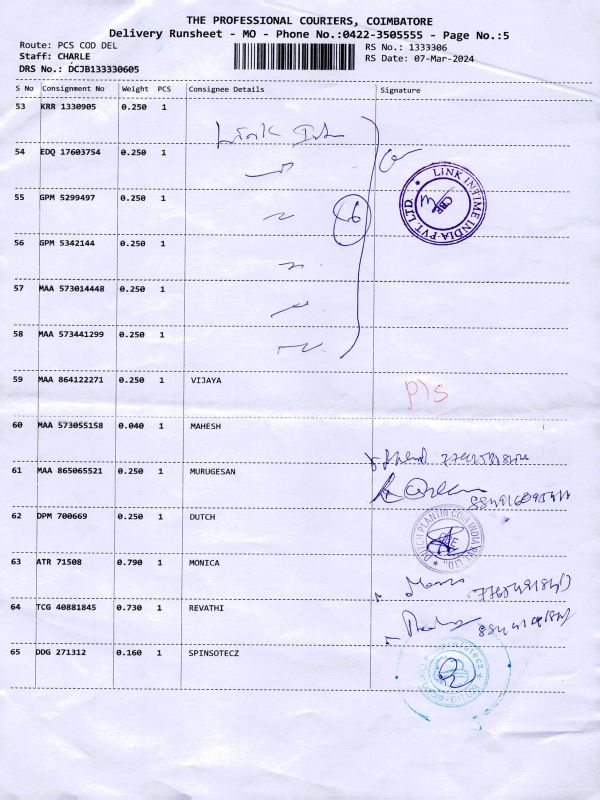 THE PROFESSIONAL COURIERS, COIMBATORE
Delivery Runsheet - MO - Phone No.:0422-3505555 - Page No.:5
Route: PCS COD DEL
RS No.: 1333306
Staff: CHARLE
RS Date: 07-Mar-2024
DRS No.: DCJB133330605
S No Consignment No Weight PCS Consignee Details Signature
53 KRR 1330905 0.250 1
Link
54 EDQ 17603754 0.250 1
LINK INTIME INDIA PVT. LTD.
CBE
55 GPM 5299497 0.250 1
56 GPM 5342144 0.250 1
57 MAA 573014448 0.250 1
58 MAA 573441299 0.250 1
59 MAA 864122271 0.250 1 VIJAYA
60 MAA 573055158 0.040 1 MAHESH
61 MAA 865065521 0.250 1 MURUGESAN
62 DPM 700669 0.250 1 DUTCH
DUTCH PLANTIN COIR INDIA PVT. LTD.
63 ATR 71508 0.790 1 MONICA
64 TCG 40881845 0.730 1 REVATHI
65 DDG 271312 0.160 1 SPINSOTECZ